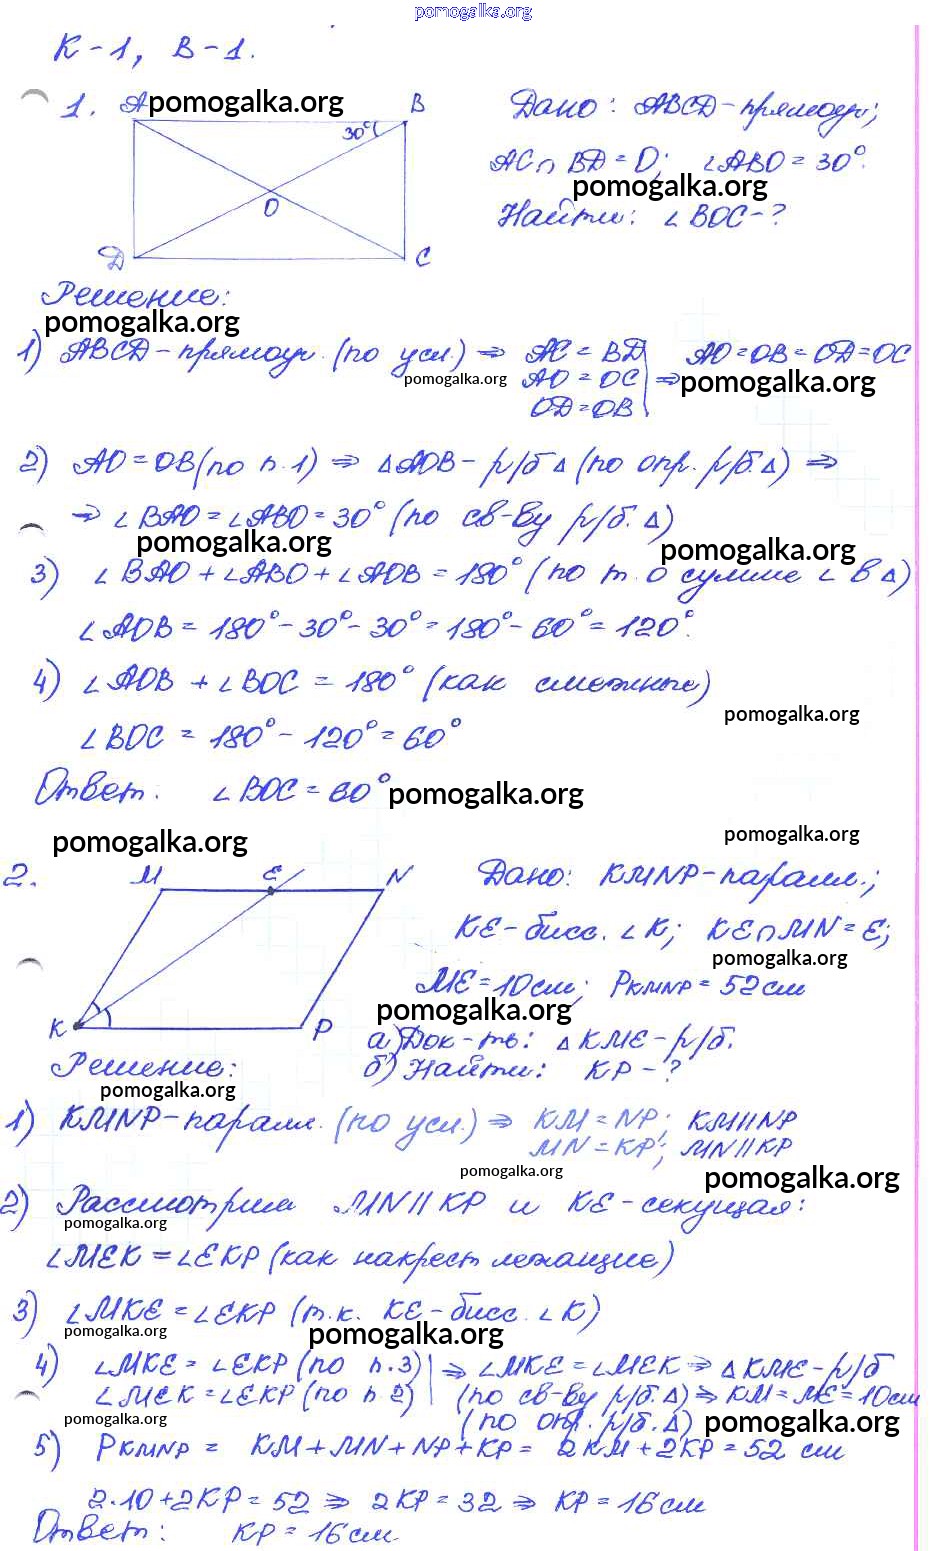 pomogalka.org
К-1, В-1.
1. A pomogalka.org B Дано: ABCD-прямоуг;
30° AC∩BD=O; ∠ABO=30°.
pomogalka.org
O Найти: ∠BOC-?
D C
Решение:
pomogalka.org
1) ABCD-прямоуг. (по усл.) ⇒ AC=BD AO=OB=OD=OC
pomogalka.org AO=OC ⇒ pomogalka.org
OD=OB
2) AO=OB (по п.1) ⇒ ΔAOB-р/б Δ (по опр. р/б.Δ) ⇒
⇒ ∠BAO=∠ABO=30° (по св-ву р/б. Δ)
pomogalka.org pomogalka.org
3) ∠BAO+∠ABO+∠AOB=180° (по т. о сумме ∠ в Δ)
∠AOB=180°-30°-30°=180°-60°=120°.
4) ∠AOB+∠BOC=180° (как смежные)
pomogalka.org
∠BOC=180°-120°=60°
Ответ: ∠BOC=60° pomogalka.org
pomogalka.org pomogalka.org
2. M E N Дано: KMNP-паралл.;
KE-бисс. ∠K; KE∩MN=E;
pomogalka.org
ME=10см; PKMNP=52см
pomogalka.org
K P а) Док-ть: ΔKME-р/б.
Решение: б) Найти: KP-?
pomogalka.org
1) KMNP-паралл. (по усл.) ⇒ KM=NP; KM||NP
MN=KP; MN||KP
pomogalka.org pomogalka.org
2) Рассмотрим MN||KP и KE-секущая:
pomogalka.org
∠MEK=∠EKP (как накрест лежащие)
3) ∠MKE=∠EKP (т.к. KE-бисс. ∠K)
pomogalka.org pomogalka.org
4) ∠MKE=∠EKP (по п.3) ⇒ ∠MKE=∠MEK ⇒ ΔKME-р/б
∠MEK=∠EKP (по п.2) (по св-ву р/б.Δ) ⇒ KM=ME=10см
pomogalka.org (по опр. р/б.Δ) pomogalka.org
5) PKMNP = KM+MN+NP+KP= 2KM+2KP=52 см
2·10+2KP=52 ⇒ 2KP=32 ⇒ KP=16см
Ответ: KP=16см.